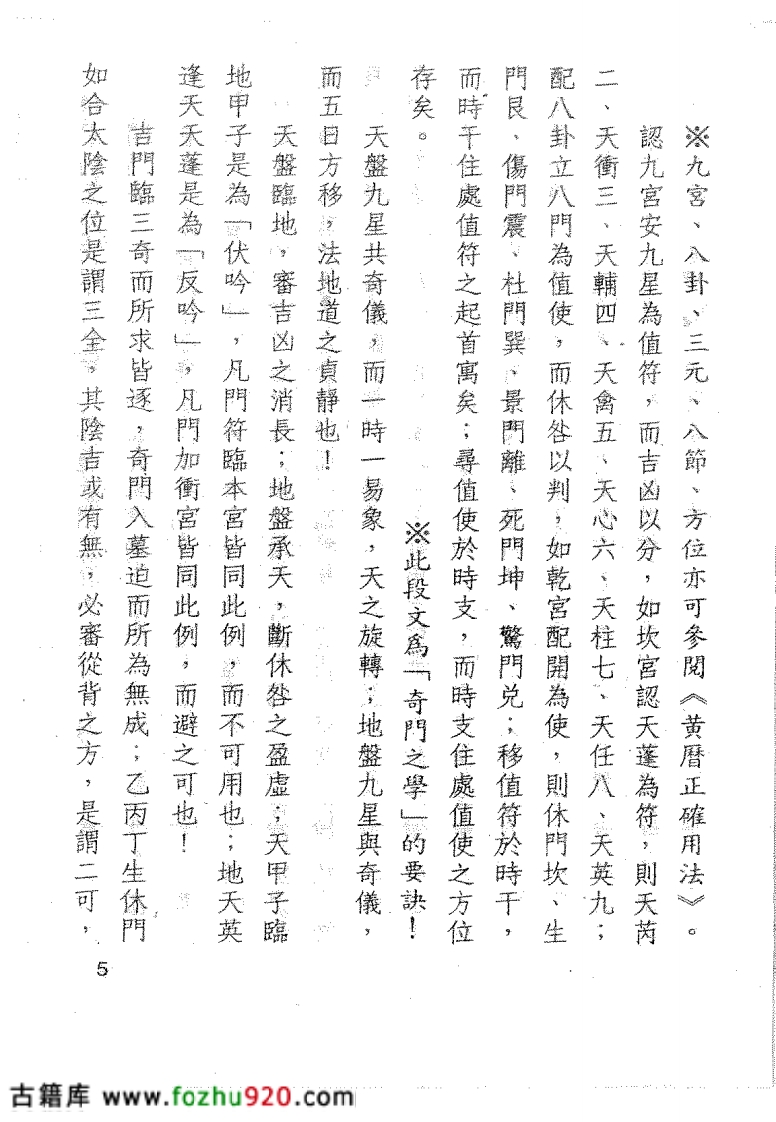 ※九宮、八卦、三元、八節、方位亦可參閱《黃曆正確用法》。
認九宮安九星為值符，而吉凶以分，如坎宮認天蓬為符，則天芮
二、天衝三、天輔四、天禽五、天心六、天柱七、天任八、天英九；
配八卦立八門為值使，而休咎以判，如乾宮配開為使，則休門坎、生
門艮、傷門震、杜門巽、景門離、死門坤、驚門兌；移值符於時干，
而時干住處值符之起首寓矣；尋值使於時支，而時支住處值使之方位
存矣。
※此段文爲「奇門之學」的要訣！
天盤九星共奇儀，而一時一易象，天之旋轉；地盤九星與奇儀，
而五日方移，法地道之貞靜也！
天盤臨地，審吉凶之消長；地盤承天，斷休咎之盈虛；天甲子臨
地甲子是為「伏吟」，凡門符臨本宮皆同此例，而不可用也；地天英
逢天天蓬是為「反吟」，凡門加衝宮皆同此例，而避之可也！
吉門臨三奇而所求皆逐，奇門入墓迫而所為無成；乙丙丁生休門
如合太陰之位是謂三全，其陰吉或有無，必審從背之方，是謂二可，
5
古籍库 www.fozhu920.com